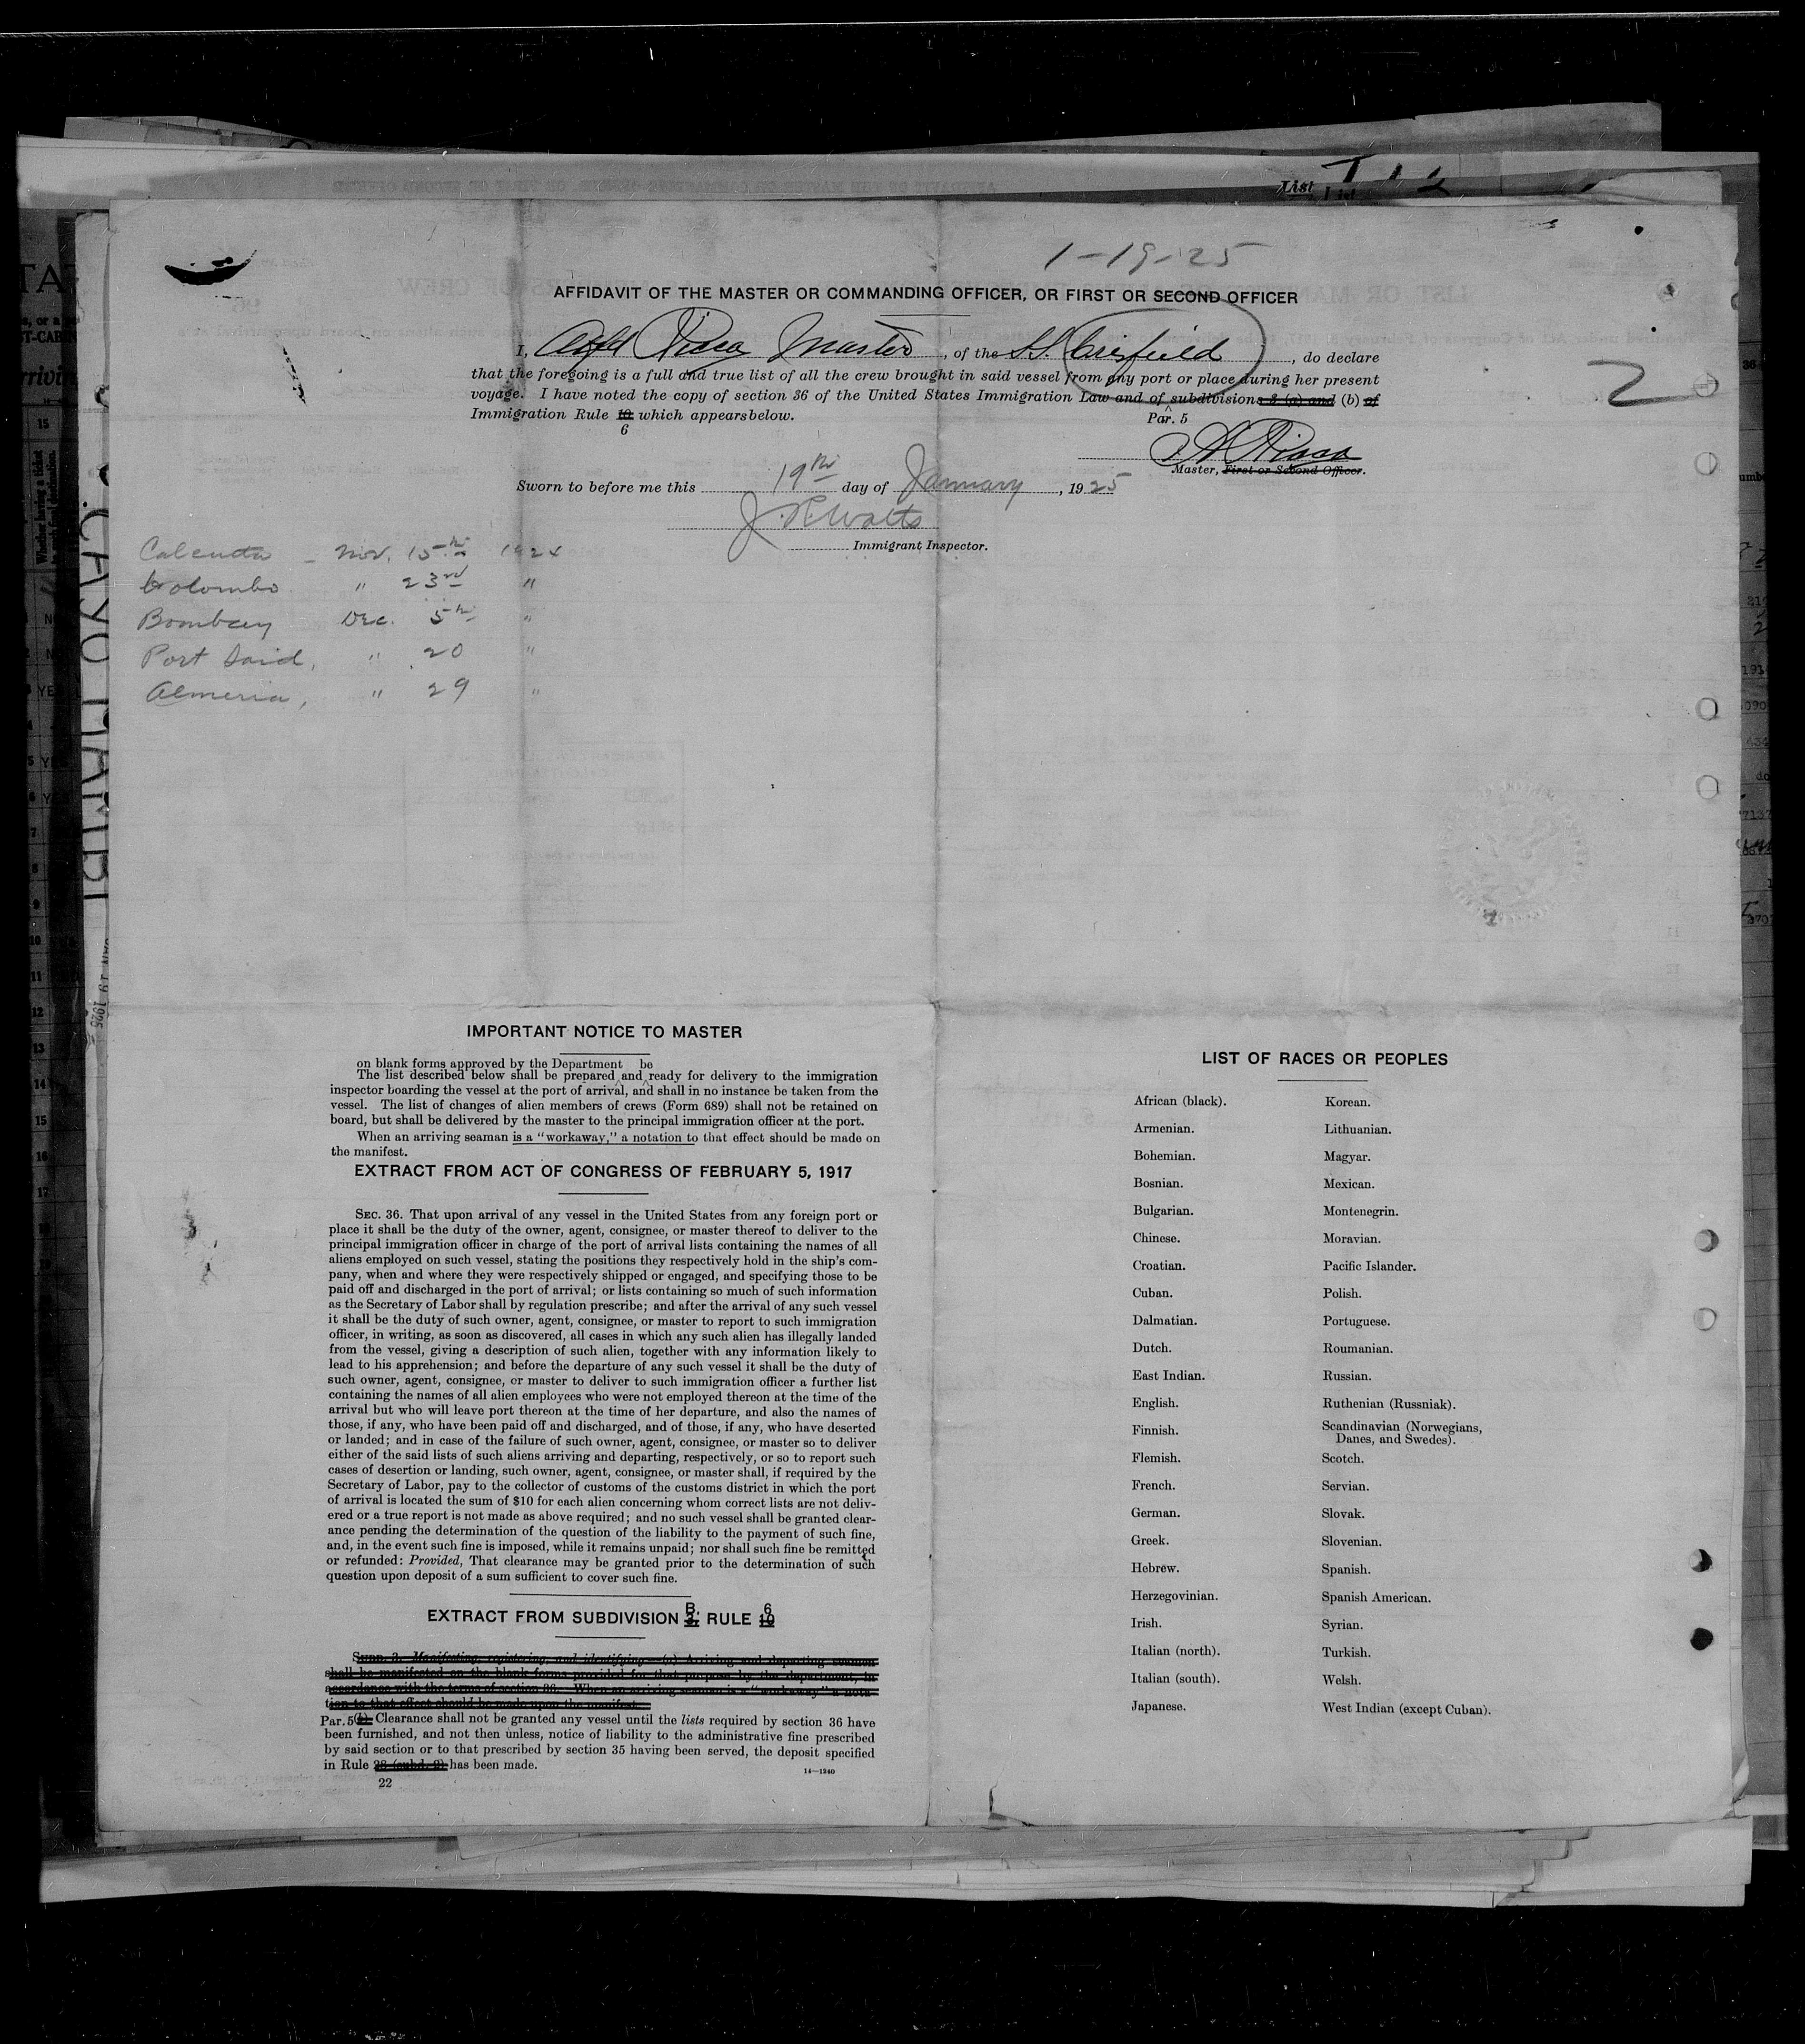 1-19-25
AFFIDAVIT OF THE MASTER OR COMMANDING OFFICER, OR FIRST OR SECOND OFFICER
I, Master, of the S.S. Crisfield, do declare
that the foregoing is a full and true list of all the crew brought in said vessel from any port or place during her present
voyage. I have noted the copy of section 36 of the United States Immigration Law and of subdivisions 3 (a) and (b) of
Par. 5
Immigration Rule 10 which appears below.
6
2
Master, First or Second Officer.
Sworn to before me this 19th day of January, 1925
J. R. Watts
Immigrant Inspector.
Calcutta - Nov. 15th 1924
Colombo " 23rd "
Bombay Dec. 5th "
Port Said, " 20 "
Almeria, " 29 "
IMPORTANT NOTICE TO MASTER
on blank forms approved by the Department be
The list described below shall be prepared and ready for delivery to the immigration
inspector boarding the vessel at the port of arrival, and shall in no instance be taken from the
vessel. The list of changes of alien members of crews (Form 689) shall not be retained on
board, but shall be delivered by the master to the principal immigration officer at the port.
When an arriving seaman is a "workaway," a notation to that effect should be made on
the manifest.
EXTRACT FROM ACT OF CONGRESS OF FEBRUARY 5, 1917
SEC. 36. That upon arrival of any vessel in the United States from any foreign port or
place it shall be the duty of the owner, agent, consignee, or master thereof to deliver to the
principal immigration officer in charge of the port of arrival lists containing the names of all
aliens employed on such vessel, stating the positions they respectively hold in the ship's com-
pany, when and where they were respectively shipped or engaged, and specifying those to be
paid off and discharged in the port of arrival; or lists containing so much of such information
as the Secretary of Labor shall by regulation prescribe; and after the arrival of any such vessel
it shall be the duty of such owner, agent, consignee, or master to report to such immigration
officer, in writing, as soon as discovered, all cases in which any such alien has illegally landed
from the vessel, giving a description of such alien, together with any information likely to
lead to his apprehension; and before the departure of any such vessel it shall be the duty of
such owner, agent, consignee, or master to deliver to such immigration officer a further list
containing the names of all alien employees who were not employed thereon at the time of the
arrival but who will leave port thereon at the time of her departure, and also the names of
those, if any, who have been paid off and discharged, and of those, if any, who have deserted
or landed; and in case of the failure of such owner, agent, consignee, or master so to deliver
either of the said lists of such aliens arriving and departing, respectively, or so to report such
cases of desertion or landing, such owner, agent, consignee, or master shall, if required by the
Secretary of Labor, pay to the collector of customs of the customs district in which the port
of arrival is located the sum of $10 for each alien concerning whom correct lists are not deliv-
ered or a true report is not made as above required; and no such vessel shall be granted clear-
ance pending the determination of the question of the liability to the payment of such fine,
and, in the event such fine is imposed, while it remains unpaid; nor shall such fine be remitted
or refunded: Provided, That clearance may be granted prior to the determination of such
question upon deposit of a sum sufficient to cover such fine.
B. 6
EXTRACT FROM SUBDIVISION 3. RULE 10
SUBD. 3. Manifesting, registering, and identifying—(a) Arriving and departing seamen
shall be manifested on the blank forms provided for that purpose by the department, in
accordance with the terms of section 36. When an arriving seaman is a "workaway" a nota-
tion to that effect should be made upon the manifest.
Par. 5 (b) Clearance shall not be granted any vessel until the lists required by section 36 have
been furnished, and not then unless, notice of liability to the administrative fine prescribed
by said section or to that prescribed by section 35 having been served, the deposit specified
in Rule 28 (subd. 2) has been made.
22
14—1240
LIST OF RACES OR PEOPLES
African (black).
Armenian.
Bohemian.
Bosnian.
Bulgarian.
Chinese.
Croatian.
Cuban.
Dalmatian.
Dutch.
East Indian.
English.
Finnish.
Flemish.
French.
German.
Greek.
Hebrew.
Herzegovinian.
Irish.
Italian (north).
Italian (south).
Japanese.
Korean.
Lithuanian.
Magyar.
Mexican.
Montenegrin.
Moravian.
Pacific Islander.
Polish.
Portuguese.
Roumanian.
Russian.
Ruthenian (Russniak).
Scandinavian (Norwegians,
Danes, and Swedes).
Scotch.
Servian.
Slovak.
Slovenian.
Spanish.
Spanish American.
Syrian.
Turkish.
Welsh.
West Indian (except Cuban).